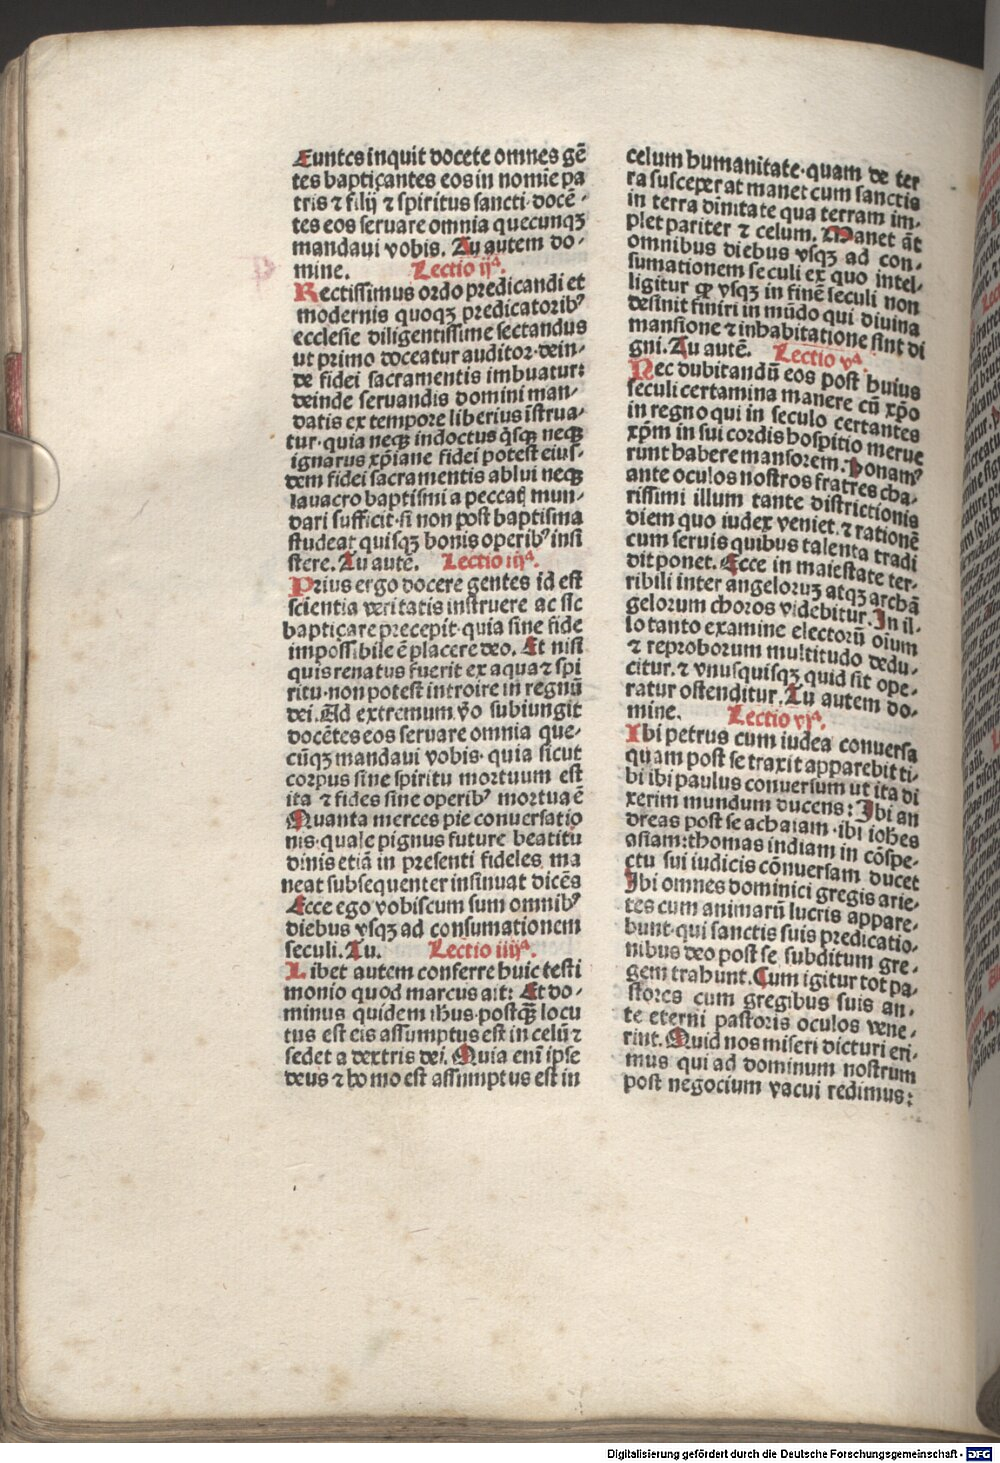 Euntes inquit docete omnes gē
tes baptiçantes eos in nomie pa
tris ⁊ filij ⁊ spiritus sancti· docē-
tes eos seruare omnia quecunqꝫ
mandaui vobis. Tu autem do-
mine. Lectio ijª.
Rectissimus ordo predicandi et
modernis quoqꝫ predicatoribꝰ
ecclesie diligentissime sectandus
ut primo doceatur auditor· dein-
de fidei sacramentis imbuatur:
deinde seruandis domini man-
datis ex tempore liberius īstrua-
tur· quia neqꝫ indoctus q̄sqꝫ neqꝫ
ignarus xp̄iane fidei potest eius-
dem fidei sacramentis ablui neqꝫ
lauacro baptismi a peccatꝭ mun-
dari sufficit· si non post baptisma
studeat quisqꝫ bonis operibꝰ insi
stere. Tu autē. Lectio iijª.
Prius ergo docere gentes id est
scientia veritatis instruere ac sic
baptiçare precepit· quia sine fide
impossibile ē placere deo. Et nisi
quis renatus fuerit ex aqua ⁊ spi
ritu· non potest introire in regnū
dei. Ad extremum v̊o subiungit
docētes eos seruare omnia que-
cūqꝫ mandaui vobis· quia sicut
corpus sine spiritu mortuum est
ita ⁊ fides sine operibꝰ mortua ē
Quanta merces pie conuersatio
nis· quale pignus future beatitu
dinis etiā in presenti fideles ma
neat subsequenter insinuat dicēs
Ecce ego vobiscum sum omnibꝰ
diebus vsqꝫ ad consumationem
seculi. Tu. Lectio iiijª.
Libet autem conferre huic testi
monio quod marcus ait: Et do-
minus quidem ihus· postqꝫ̄ locu
tus est eis assumptus est in celū ⁊
sedet a dextris dei. Quia enī ipse
deus ⁊ homo est assumptus est in
celum humanitate· quam de ter
ra susceperat manet cum sanctis
in terra diūitate qua terram im-
plet pariter ⁊ celum. Manet āt
omnibus diebus vsqꝫ ad con-
sumationem seculi ex quo intel-
ligitur qꝫ vsqꝫ in finē seculi non
desinit finiri in mūdo qui diuina
mansione ⁊ inhabitatione sint di
gni. Tu autē. Lectio vª.
Nec dubitandū eos post huius
seculi certamina manere cū xp̄o
in regno qui in seculo certantes
xp̄m in sui cordis hospitio merue
runt habere mansorem. Ponamꝰ
ante oculos nostros fratres cha-
rissimi illum tante districtionis
diem quo iudex veniet· ⁊ rationē
cum seruis quibus talenta tradi
dit ponet. Ecce in maiestate ter-
ribili inter angeloruꝫ atqꝫ archā
gelorum choros videbitur. In il-
lo tanto examine electorū oīum
⁊ reproborum multitudo dedu-
citur. ⁊ vnusquisqꝫ quid sit ope-
ratur ostenditur. Tu autem do-
mine. Lectio vjª.
Ibi petrus cum iudea conuersa
quam post se traxit apparebit· ti-
bi ibi paulus conuersum ut ita di
xerim mundum ducens: Ibi an
dreas post se achaiam· ibi iohēs
asiam: thomas indiam in cōspe-
ctu sui iudicis cōnuersam ducet
Ibi omnes dominici gregis arie-
tes cum animarū lucris appare-
bunt· qui sanctis suis predicatio-
nibus deo post se subditum gre-
gem trahunt. Cum igitur tot pa-
stores cum gregibus suis an-
te eterni pastoris oculos vene-
rint. Quid nos miseri dicturi eri-
mus qui ad dominum nostrum
post negocium vacui redimus:
Digitalisierung gefördert durch die Deutsche Forschungsgemeinschaft - DFG